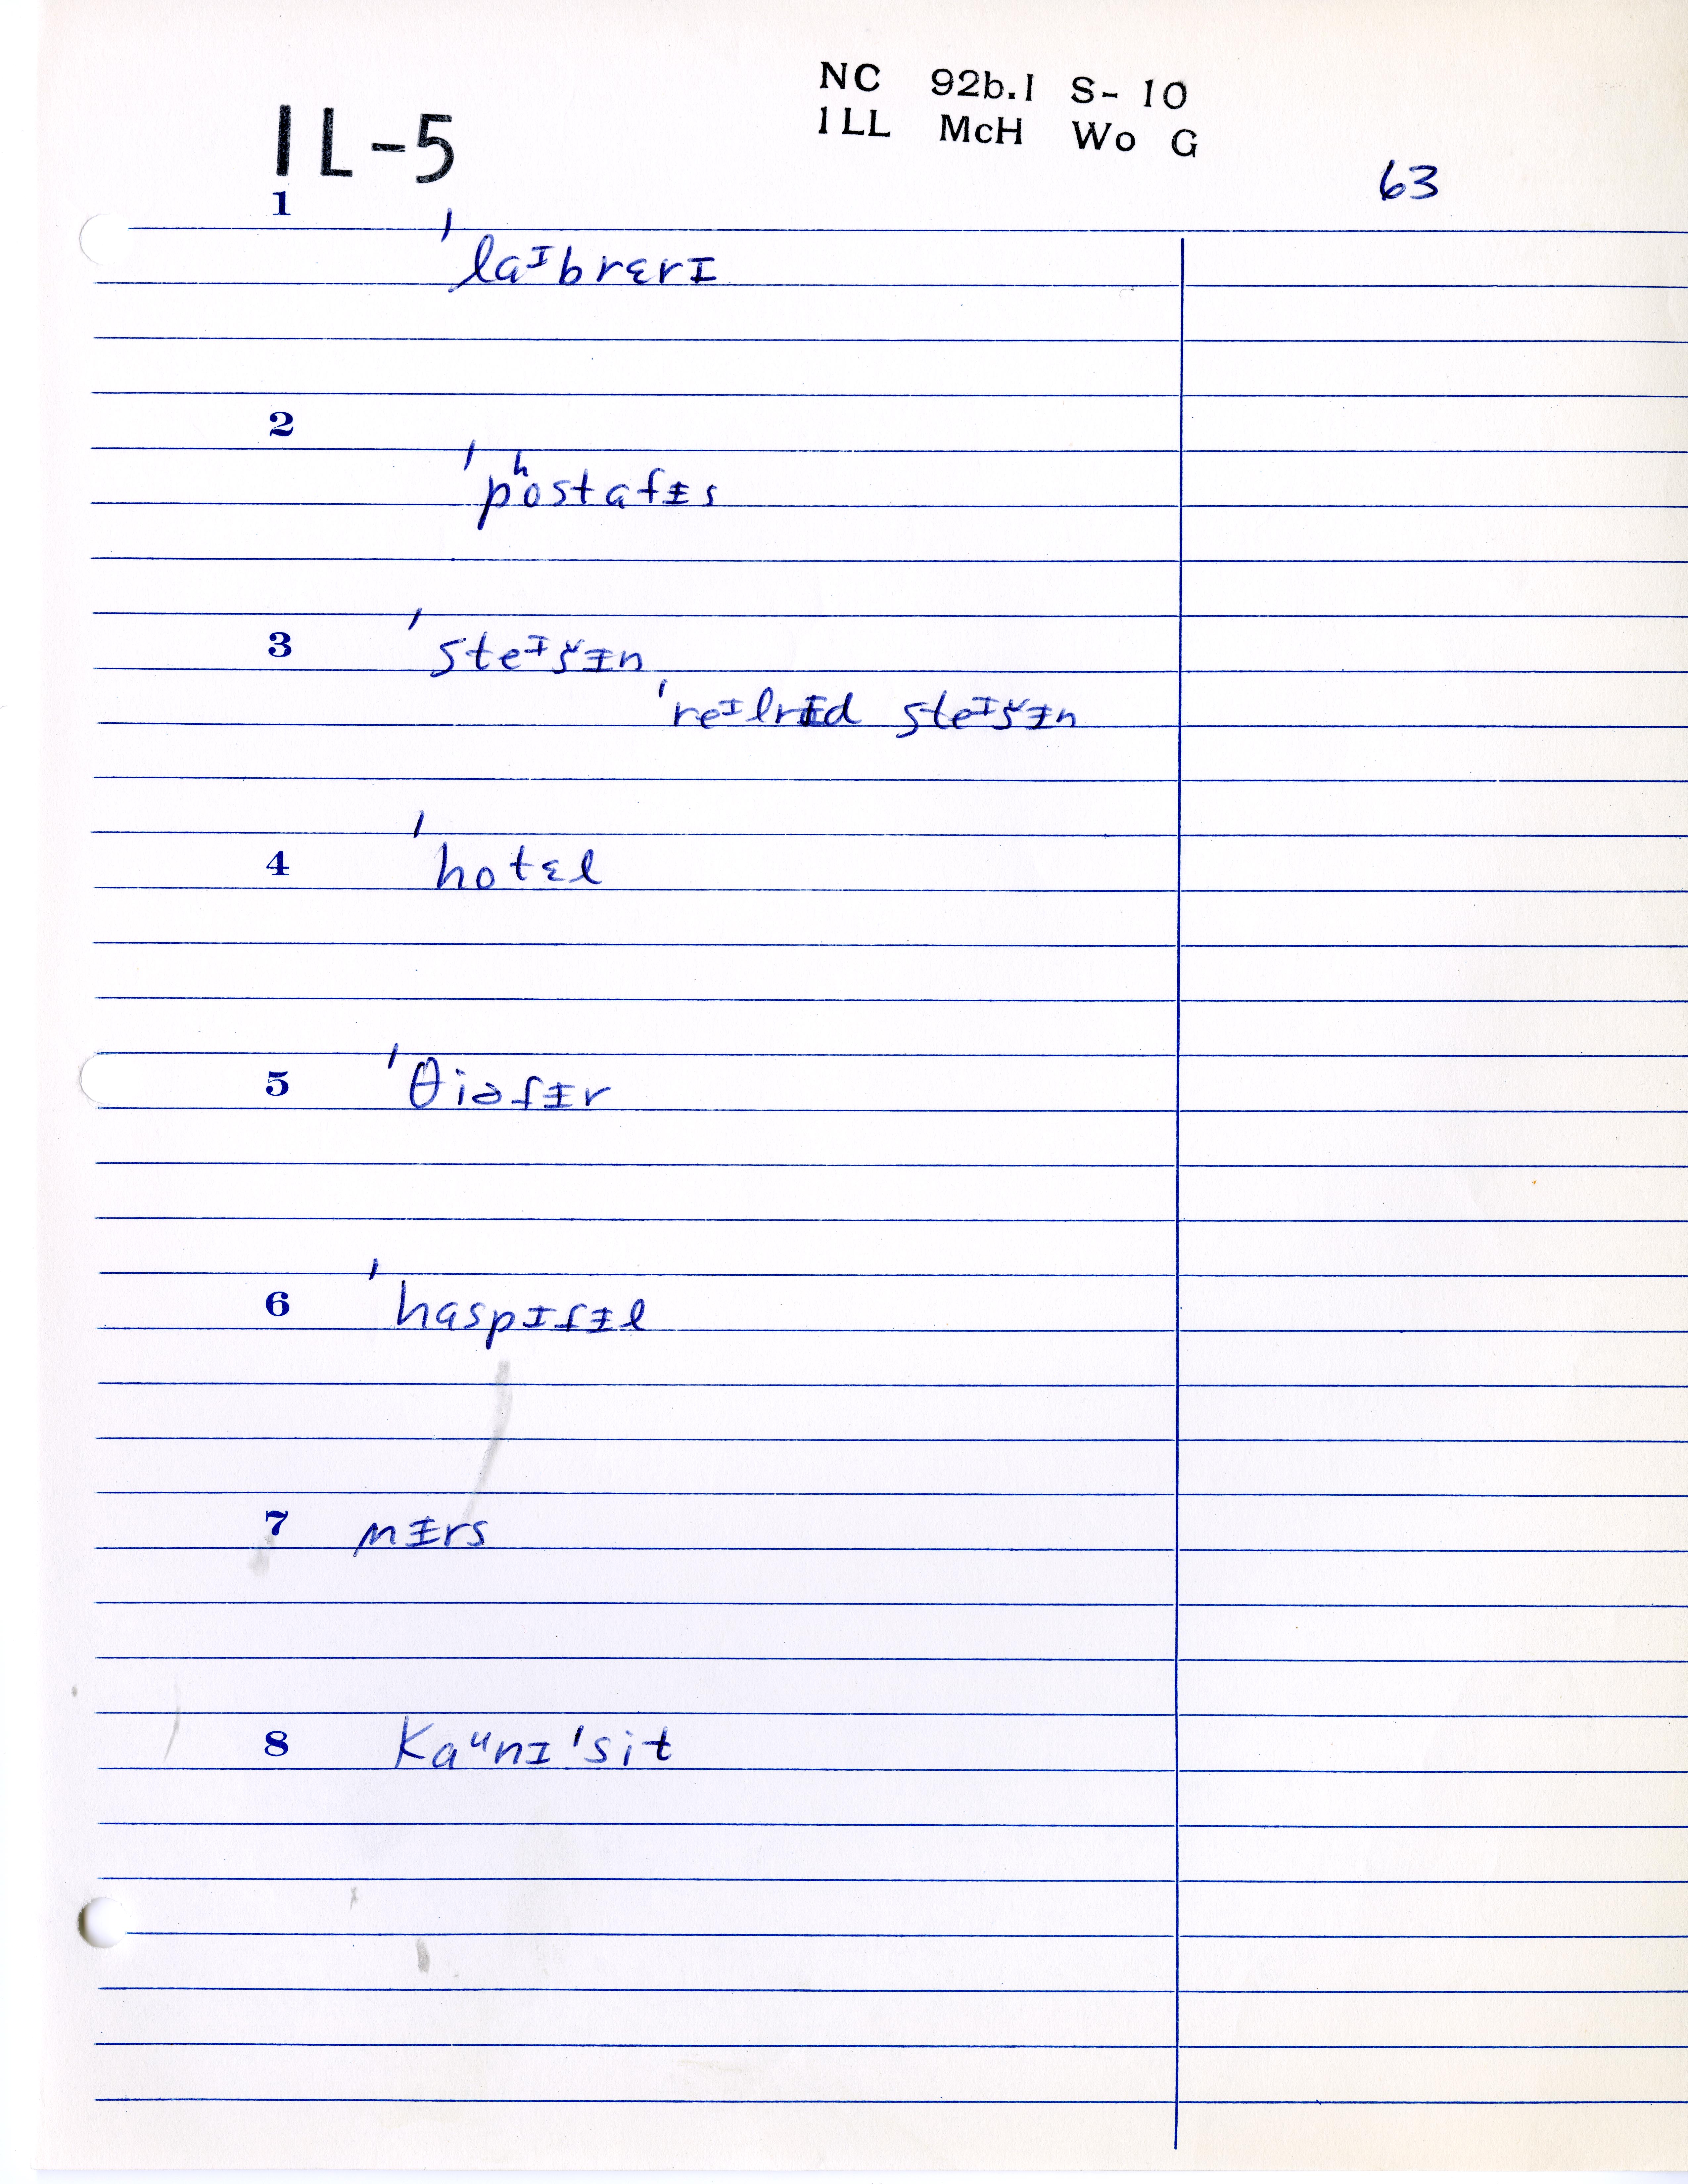 NC 92b.1 S- 10
IL-5
1LL McH Wo G
63
1
ˈlaᶦbrɛrɪ
2
ˈpʰostafᵻs
3 ˈsteᶦšᵻn
ˈreᶦlrᵻd steᶦšᵻn
4 ˈhotɛl
5 ˈθiəɾᵻr
6 ˈhaspᵻɾᵻl
7 nᵻrs
8 kaᵘnɪˈsit